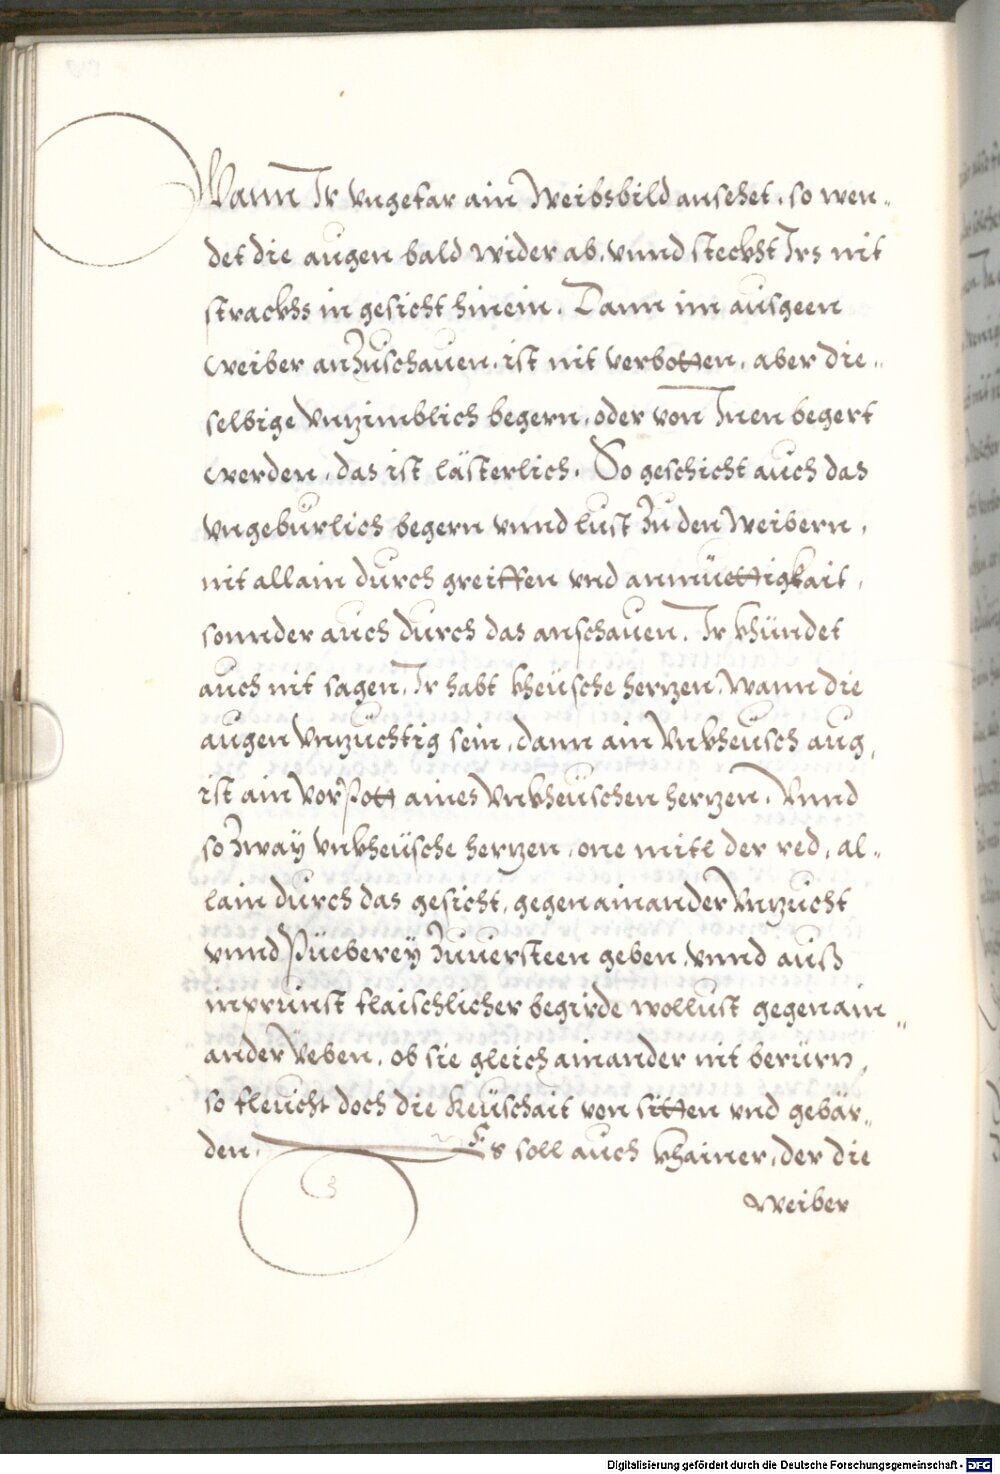 Wann Ir vngefar ain Weibsbild ansehet, so wen„
det die augen bald wider ab, vnnd steckht Irs nit
strackhs in gesicht hinein. Dann im ausgeen
weiber anzuschauen, ist nit verbotten, aber die„
selbige vnzimblich begern, oder von Inen begert
werden, das ist lästerlich. So geschicht auch das
vngebürlich begern vnnd lust zu den Weibern,
nit allain durch greiffen vnd anmüettigkait,
sonnder auch durch das anschauen. Ir khündet
auch nit sagen, Ir habt kheüsche hertzen, wann die
augen vnzüchtig sein, dann ain vnkheüsch aug,
ist ain vorpott aines vnkheüschen hertzen. Vnnd
so zway vnkheüsche hertzen, one mitl der red, al„
lain durch das gesicht, gegen ainander vnzucht
vnnd Püeberey zuuersteen geben, vnnd auß
inprunst flaischlicher begirde wollust gegen ain„
ander üeben, ob sie gleich ainander nit berürn,
so fleucht doch die Keüschait von sitten vnd gebär„
den. Es soll auch khainer, der die
weiber
Digitalisierung gefördert durch die Deutsche Forschungsgemeinschaft - DFG